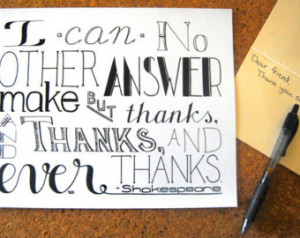 I can No
OTHER ANSWER
make BUT thanks,
AND THANKS, AND
ever THANKS
-Shakespeare
Dear friend
Thank you